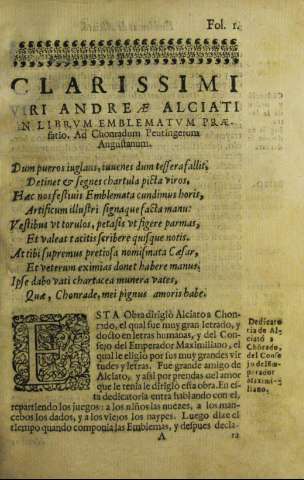 Fol. 1.
CLARISSIMI
VIRI ANDREÆ ALCIATI
IN LIBRVM EMBLEMATVM PRÆ-
fatio, Ad Chonradum Peutingerum
Augustanum.
Dum pueros iuglans, iuuenes dum tessera fallit,
Detinet & segnes chartula picta viros,
Hæc nos festiuis Emblemata cundimus horis,
Artificum illustri signaque facta manu:
Vestibus vt torulos, petasis vt figere parmas,
Et valeat tacitis scribere quisque notis.
At tibi supremus pretiosa nomismata Cæsar,
Et veterum eximias donet habere manus,
Ipse dabo vati chartacea munera vates,
Quæ, Chonrade, mei pignus amoris habe.
ESTA Obra dirigiò Alciato a Chon-
rado, el qual fue muy gran letrado, y
docto en letras humanas, y del Con-
sejo del Emperador Maximiliano, el
qual le eligio por sus muy grandes vir
tudes y letras. Fue grande amigo de
Alciato, y assi por prendas del amor
que le tenia le dirigio esta obra. En es-
ta dedicatoria entra hablando con el,
repartiendo los juegos: a los niños las nuezes, a los man-
cebos los dados, y a los viejos los naypes. Luego dize el
tiempo quando componia las Emblemas, y despues decla-
A
ra
Dedicato
ria de Al-
ciato a
Chorado,
del Conse
jo del Em-
perador
Maximi-
liano.